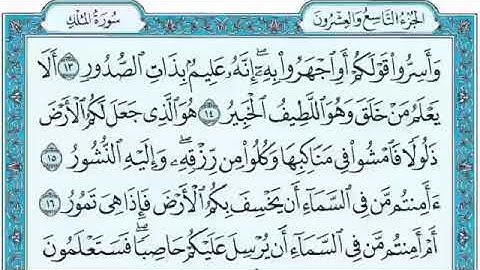 الجزء التاسع والعشرون
سورة الملك
وَأَسِرُّوا۟ قَوْلَكُمْ أَوِ ٱجْهَرُوا۟ بِهِۦٓ ۖ إِنَّهُۥ عَلِيمٌۢ بِذَاتِ ٱلصُّدُورِ ١٣ أَلَا
يَعْلَمُ مَنْ خَلَقَ وَهُوَ ٱللَّطِيفُ ٱلْخَبِيرُ ١٤ هُوَ ٱلَّذِى جَعَلَ لَكُمُ ٱلْأَرْضَ
ذَلُولًا فَٱمْشُوا۟ فِى مَنَاكِبِهَا وَكُلُوا۟ مِن رِّزْقِهِۦ ۖ وَإِلَيْهِ ٱلنُّشُورُ ١٥
ءَأَمِنتُم مَّن فِى ٱلسَّمَآءِ أَن يَخْسِفَ بِكُمُ ٱلْأَرْضَ فَإِذَا هِىَ تَمُورُ ١٦
أَمْ أَمِنتُم مَّن فِى ٱلسَّمَآءِ أَن يُرْسِلَ عَلَيْكُمْ حَاصِبًا ۖ فَسَتَعْلَمُونَ